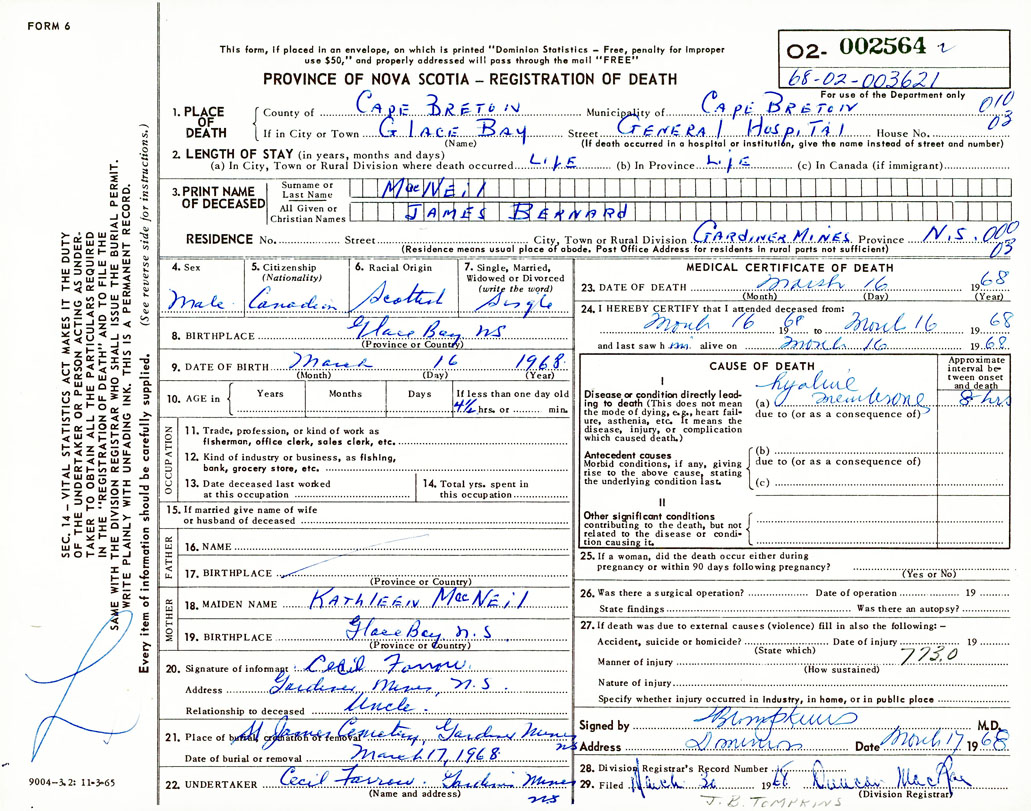 FORM 6
This form, if placed in an envelope, on which is printed "Dominion Statistics – Free, penalty for improper
use $50," and properly addressed will pass through the mail "FREE"
PROVINCE OF NOVA SCOTIA – REGISTRATION OF DEATH
02- 002564
68-02-003621
For use of the Department only
010
03
1. PLACE OF DEATH
County of CAPE BRETON Municipality of CAPE BRETON
If in City or Town GLACE BAY Street GENERAL HOSPITAL House No.
(Name) (If death occurred in a hospital or institution, give the name instead of street and number)
2. LENGTH OF STAY (in years, months and days)
(a) In City, Town or Rural Division where death occurred LIFE (b) In Province LIFE (c) In Canada (if immigrant)
3. PRINT NAME OF DECEASED
Surname or Last Name MacNEIL
All Given or Christian Names JAMES BERNARD
RESIDENCE No. Street City, Town or Rural Division GARDINER MINES Province N.S. 000
03
(Residence means usual place of abode. Post Office Address for residents in rural parts not sufficient)
4. Sex Male
5. Citizenship (Nationality) Canadian
6. Racial Origin Scottish
7. Single, Married, Widowed or Divorced (write the word) Single
8. BIRTHPLACE Glace Bay, NS
(Province or Country)
9. DATE OF BIRTH March 16 1968
(Month) (Day) (Year)
10. AGE in Years Months Days If less than one day old
4½ hrs. or min.
OCCUPATION
11. Trade, profession, or kind of work as
fisherman, office clerk, sales clerk, etc.
12. Kind of industry or business, as fishing,
bank, grocery store, etc.
13. Date deceased last worked
at this occupation
14. Total yrs. spent in
this occupation
15. If married give name of wife
or husband of deceased
FATHER
16. NAME
17. BIRTHPLACE
(Province or Country)
MOTHER
18. MAIDEN NAME KATHLEEN MacNEIL
19. BIRTHPLACE Glace Bay, N.S.
(Province or Country)
20. Signature of informant Cecil Farrow
Address Gardiner Mines, N.S.
Relationship to deceased Uncle.
21. Place of burial, cremation or removal St James Cemetery, Gardiner Mines
NS
Date of burial or removal March 17, 1968
22. UNDERTAKER Cecil Farrow. Gardiner Mines
(Name and address) NS
MEDICAL CERTIFICATE OF DEATH
23. DATE OF DEATH March 16 1968
(Month) (Day) (Year)
24. I HEREBY CERTIFY that I attended deceased from:
March 16 1968 to March 16 1968
and last saw him alive on March 16 1968
CAUSE OF DEATH
Approximate interval between onset and death
I
Disease or condition directly leading to death (This does not mean
the mode of dying, e.g., heart failure, asthenia, etc. It means the
disease, injury, or complication
which caused death.)
(a) hyaline membrane 8 hrs
due to (or as a consequence of)
Antecedent causes
Morbid conditions, if any, giving
rise to the above cause, stating
the underlying condition last.
(b)
due to (or as a consequence of)
(c)
II
Other significant conditions
contributing to the death, but not
related to the disease or condition causing it.
25. If a woman, did the death occur either during
pregnancy or within 90 days following pregnancy?
(Yes or No)
26. Was there a surgical operation? Date of operation 19
State findings Was there an autopsy?
27. If death was due to external causes (violence) fill in also the following: –
Accident, suicide or homicide? Date of injury 19
(State which) 773.0
Manner of injury
(How sustained)
Nature of injury
Specify whether injury occurred in industry, in home, or in public place
Signed by JBTompkins M.D.
Address Dominion Date March 17 1968
28. Division Registrar's Record Number
29. Filed March 20 1968 Duncan MacRae
(Division Registrar)
J. B. TOMPKINS
SEC. 14 – VITAL STATISTICS ACT MAKES IT THE DUTY
OF THE UNDERTAKER OR PERSON ACTING AS UNDER-
TAKER TO OBTAIN ALL THE PARTICULARS REQUIRED
IN THE "REGISTRATION OF DEATH" AND TO FILE THE
SAME WITH THE DIVISION REGISTRAR WHO SHALL ISSUE THE BURIAL PERMIT.
WRITE PLAINLY WITH UNFADING INK. THIS IS A PERMANENT RECORD.
Every item of information should be carefully supplied. (See reverse side for instructions.)
9004-3.2: 11-3-65